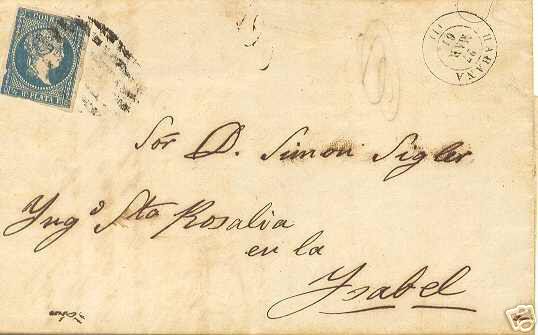 CORREOS
½ Rˡ PLATA F.
HABANA
27
MAR
61
Sor. D. Simon Sigler
Yngº Sta Rosalia
en la
Ysabel